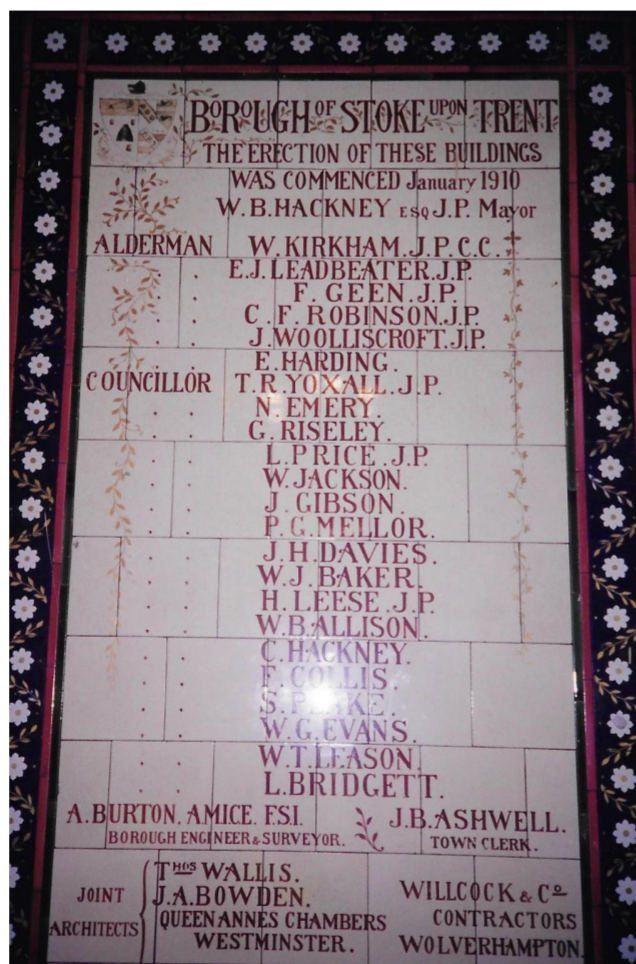 BOROUGH OF STOKE UPON TRENT
THE ERECTION OF THESE BUILDINGS
WAS COMMENCED January 1910
W.B.HACKNEY ESQ J.P. Mayor
ALDERMAN W.KIRKHAM.J.P.C.C.
. . E.J.LEADBEATER.J.P.
. . F. GEEN.J.P.
. . C.F.ROBINSON.J.P.
. . J.WOOLLISCROFT.J.P.
E.HARDING.
COUNCILLOR T.R.YOXALL.J.P.
. . N.EMERY.
. . G.RISELEY.
. . L.PRICE.J.P.
. . W.JACKSON.
. . J.GIBSON.
. . P.G.MELLOR.
. . J.H.DAVIES.
. . W.J.BAKER.
. . H.LEESE.J.P.
. . W.B.ALLISON.
. . C.HACKNEY.
. . F.COLLIS.
. . S.
. . W.G.EVANS.
. . W.T.LEASON.
. . L.BRIDGETT.
A.BURTON. AMICE. F.S.I. J.B.ASHWELL.
BOROUGH ENGINEER & SURVEYOR. TOWN CLERK.
JOINT ARCHITECTS
THOS WALLIS.
J.A.BOWDEN.
QUEEN ANNES CHAMBERS
WESTMINSTER.
WILLCOCK & Co
CONTRACTORS
WOLVERHAMPTON.